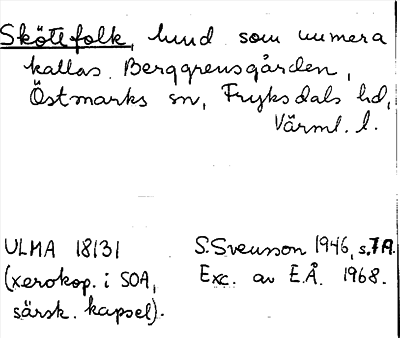 Skötefolk, lund som numera
kallas Berggrensgården,
Östmarks sn, Fryksdals hd,
Värml. l.
ULMA 18131 S. Svensson 1946, s. 79.
(xerokop. i SOA, Exc. av E.Å. 1968.
särsk. kapsel).